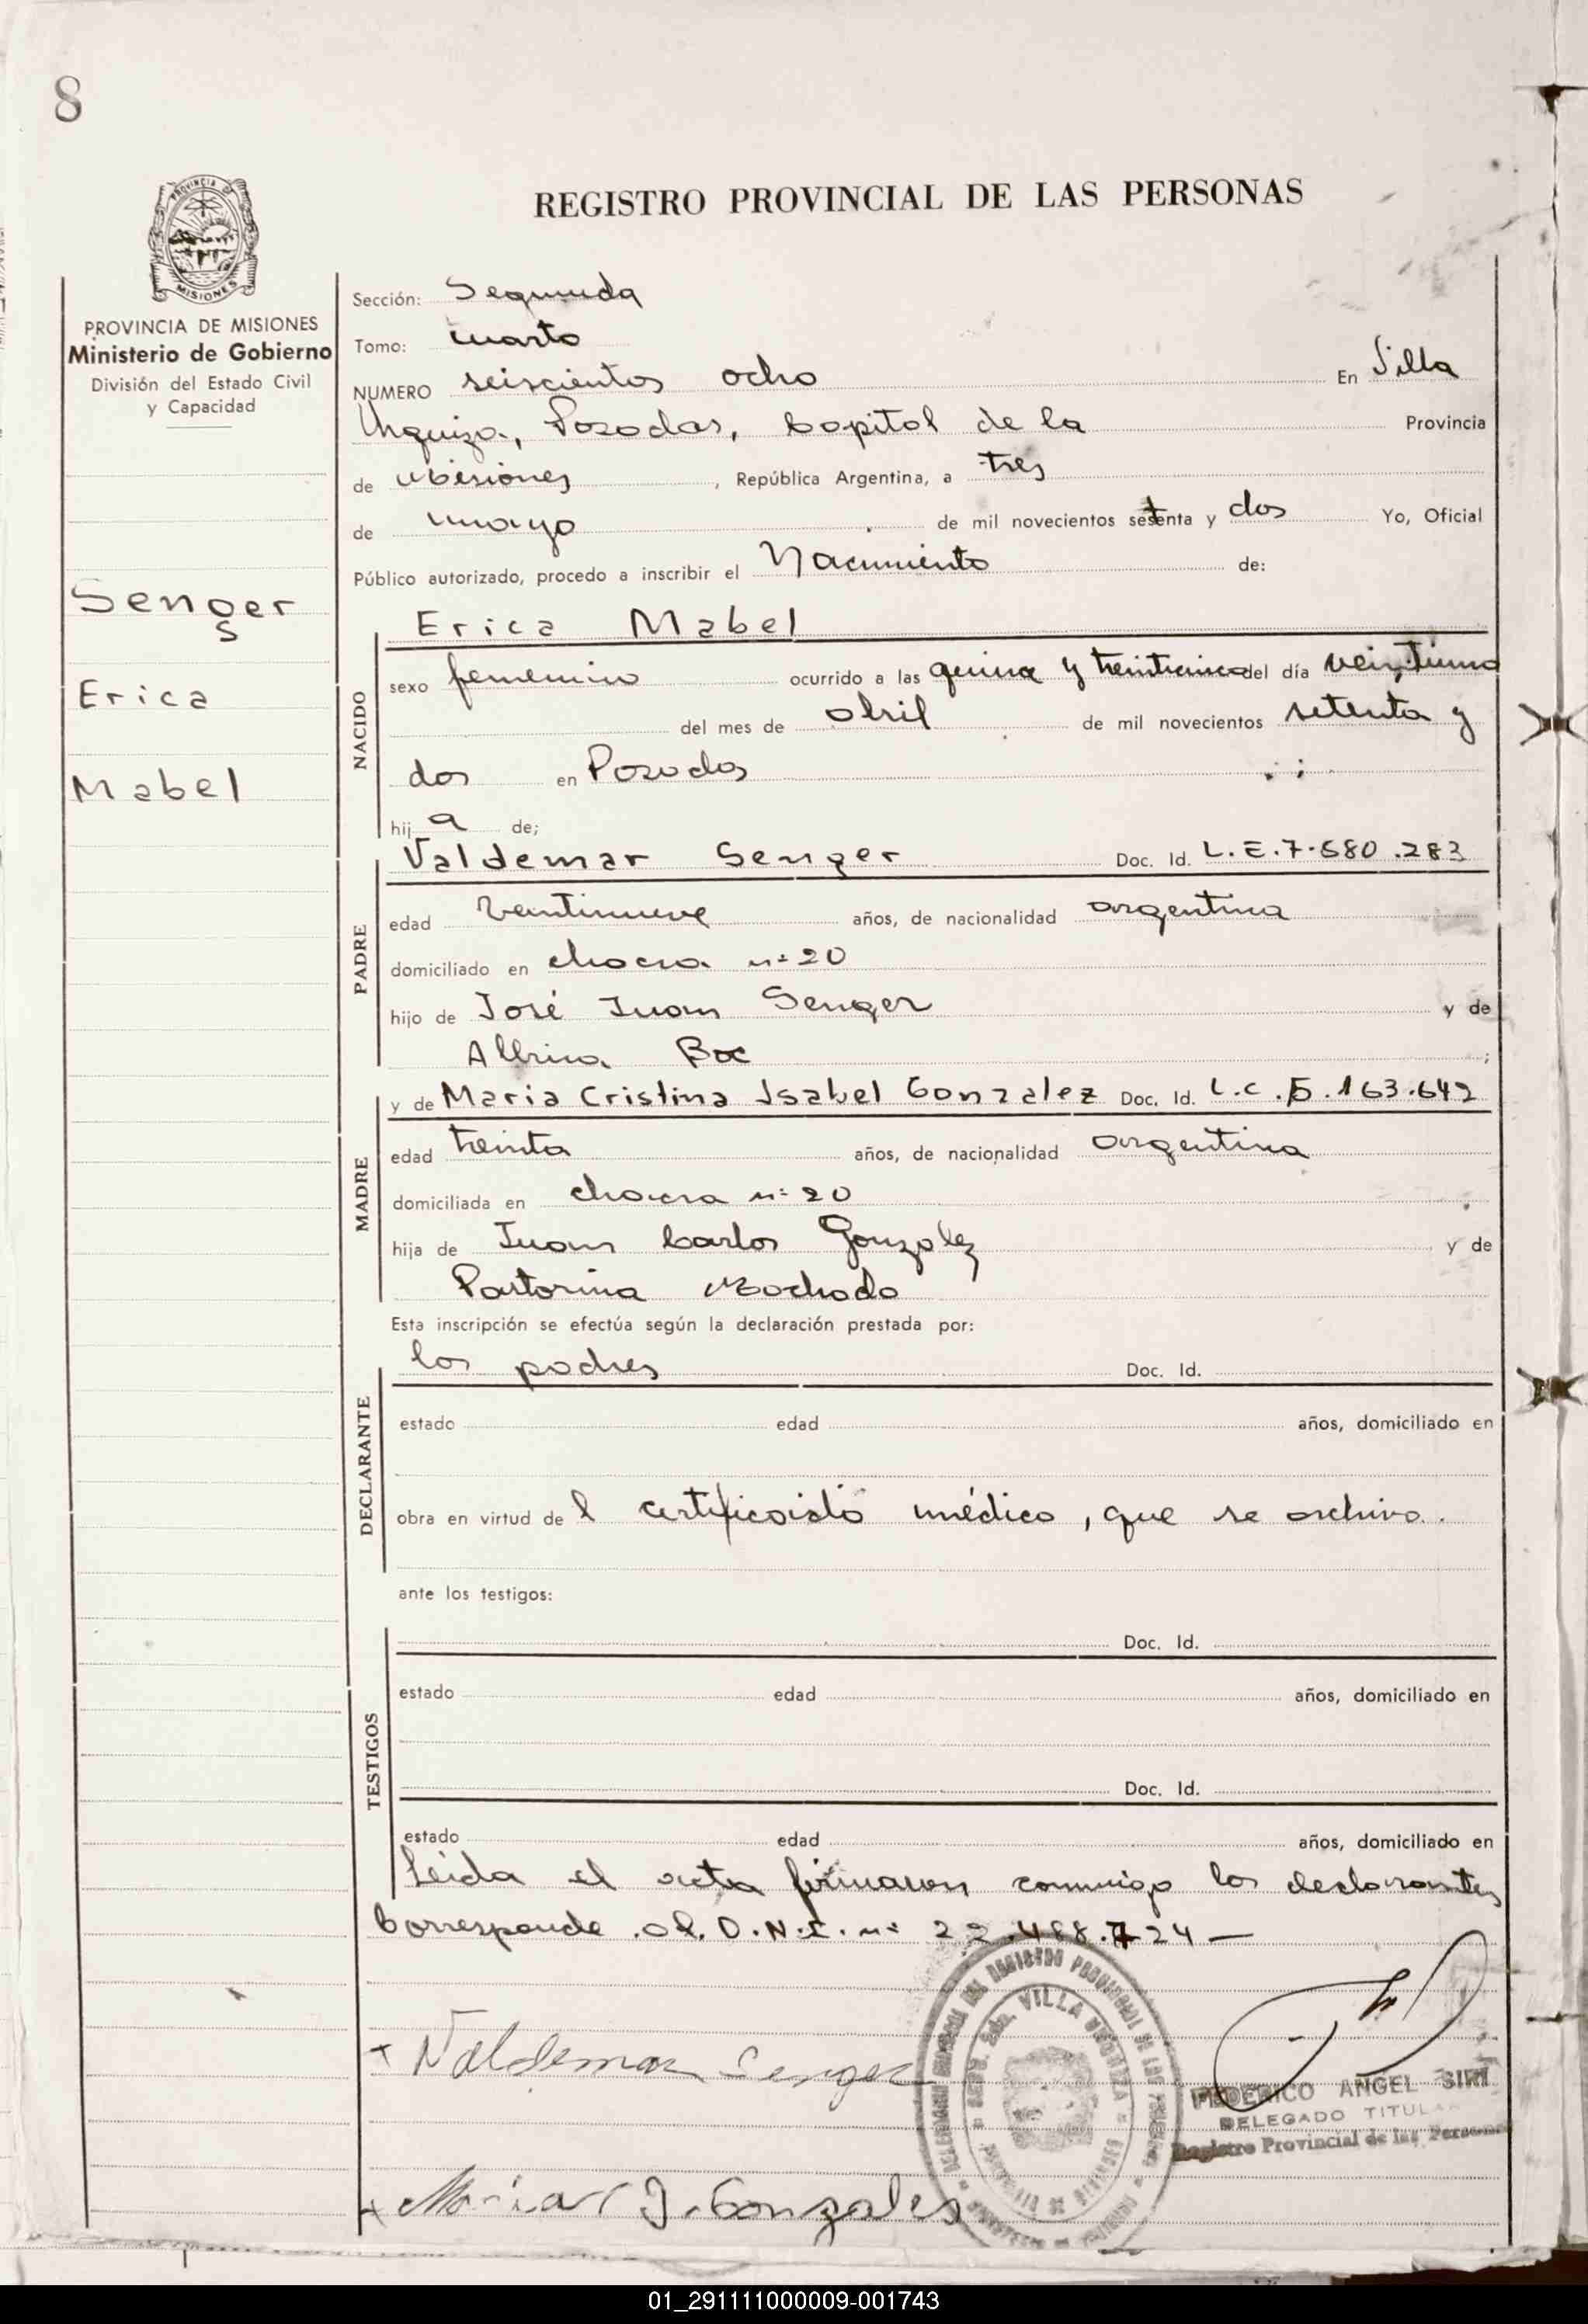 8
REGISTRO PROVINCIAL DE LAS PERSONAS
PROVINCIA DE MISIONES
Ministerio de Gobierno
División del Estado Civil
y Capacidad
Senger
s
Erica
Mabel
Sección: Segunda
Tomo: cuarto
NUMERO seiscientos ocho En Villa
Urquiza, Posadas, Capital de la Provincia
de Misiones, República Argentina, a tres
de mayo de mil novecientos setenta y dos Yo, Oficial
Público autorizado, procedo a inscribir el Nacimiento de:
Erica Mabel
NACIDO
sexo femenino ocurrido a las quince y treinticinco del día veintiuno
del mes de abril de mil novecientos setenta y
dos en Posadas
hij a de;
Valdemar Senger Doc. Id. L.E.7.580.283
PADRE
edad veintinueve años, de nacionalidad argentina
domiciliado en chacra nº 20
hijo de José Juan Senger y de
Albina Boc ;
y de Maria Cristina Isabel Gonzalez Doc. Id. L.C.5.163.642
MADRE
edad treinta años, de nacionalidad argentina
domiciliada en chacra nº 20
hija de Juan Carlos Gonzalez y de
Pastorina Machado
Esta inscripción se efectúa según la declaración prestada por:
los padres Doc. Id.
DECLARANTE
estado edad años, domiciliado en
obra en virtud de l certificado médico, que se archiva.
ante los testigos:
Doc. Id.
TESTIGOS
estado edad años, domiciliado en
Doc. Id.
estado edad años, domiciliado en
Leída el acta firmaron conmigo los declarantes
Corresponde al D.N.I. nº 22.488.724—
Valdemar Senger
VILLA URQUIZA
FEDERICO ANGEL SIRI
DELEGADO TITULAR
Registro Provincial de las Personas
Maria C I. Gonzales
01_291111000009-001743